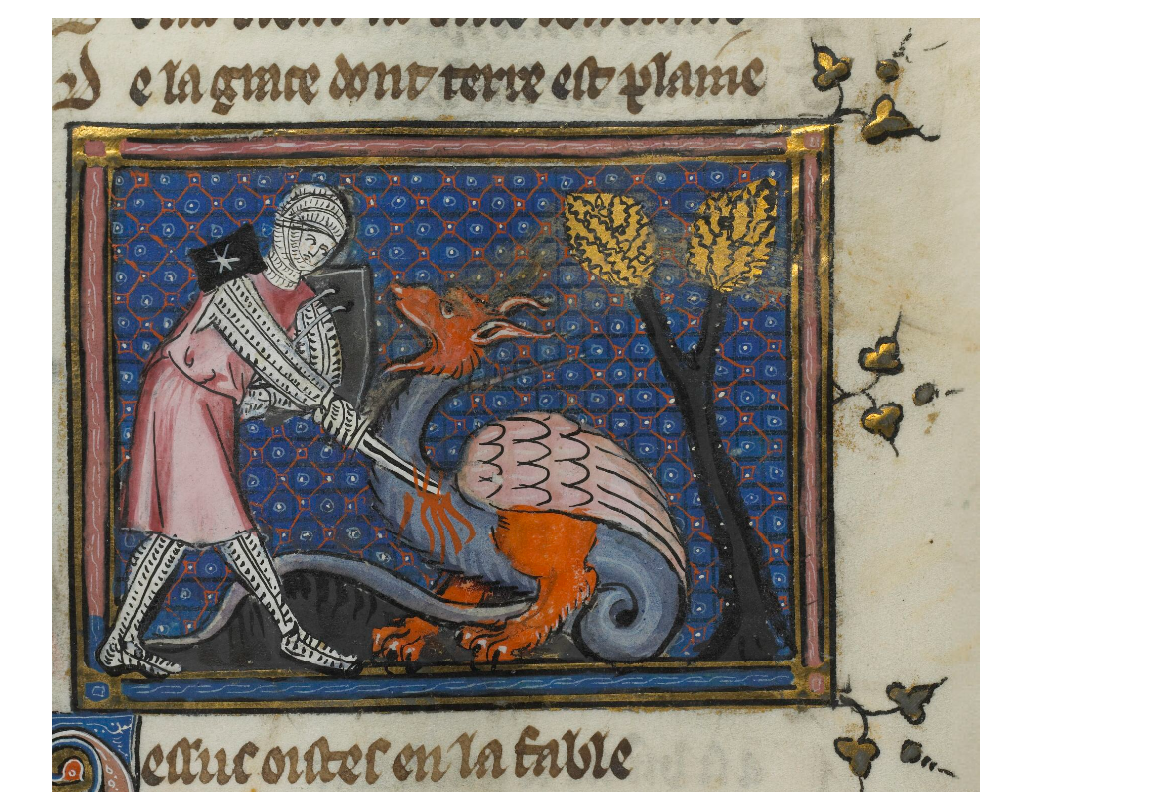 De la grace dont terre est plaine
Dessus oistes en la fable